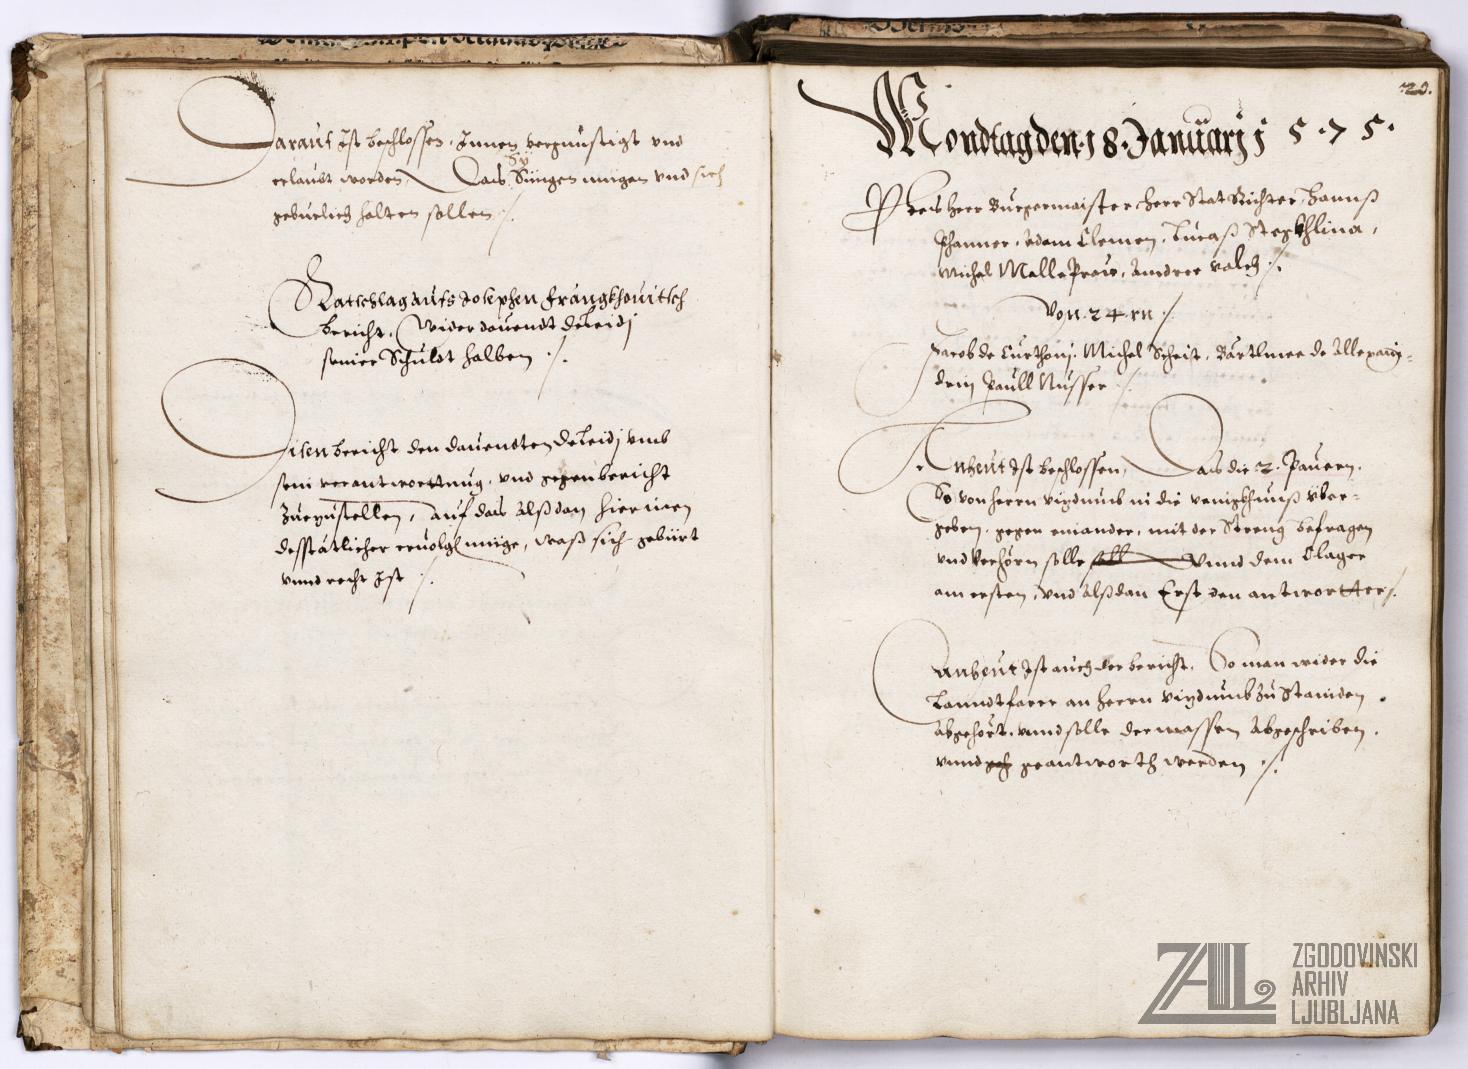 Darauf Ist beschlossen, Innen vergunstigt und
erlaubt worden, Das Sy Singen mügen und sich
gebürlich halten sollen ./.
Ratschlag aufs Josephen Frangkhouitsch
bericht, wider dauendt deLeidj
seiner Schuldt halben ./.
Disen bericht den dauendten deLeidj umb
sein verantworttung, und gegenbericht
Zuezustellen, Auf das Alßdan hierinen
desstätlicher eruolgen müge, waß sich gebürt
unnd recht Ist ./.
20.
Mondtag den 18 Januarij 575.
Pres herr Burgermaister herr Stat Richter, Hannß
Phanner, Adam Clemen, Lucaß Stegkhlina,
Michel Mallaprow, Andree Valch ./.
Von 24.rn ./.
Jacob de Curthonj, Michel Scheit, Bartlmee de Allexan=
drin Paull Nusser ./.
Anheut Ist beschlossen, Das die 2. Pauern,
So von herrn Vizdumb in die venigkhnuß über=
geben, gegen einander, mit der Streng befragen
und Verhörn solle soll Unnd dem Clager
am ersten, und Alßdan Erst den antwortter ./.
Anheut Ist auch der bericht, So man wider die
Lanndtfarer an herrn Vizdumb zu Stainden
Abgehört, unnd solle dermassen Abgeschriben,
unnd geantworth werden ./.
ZAL
ZGODOVINSKI
ARHIV
LJUBLJANA